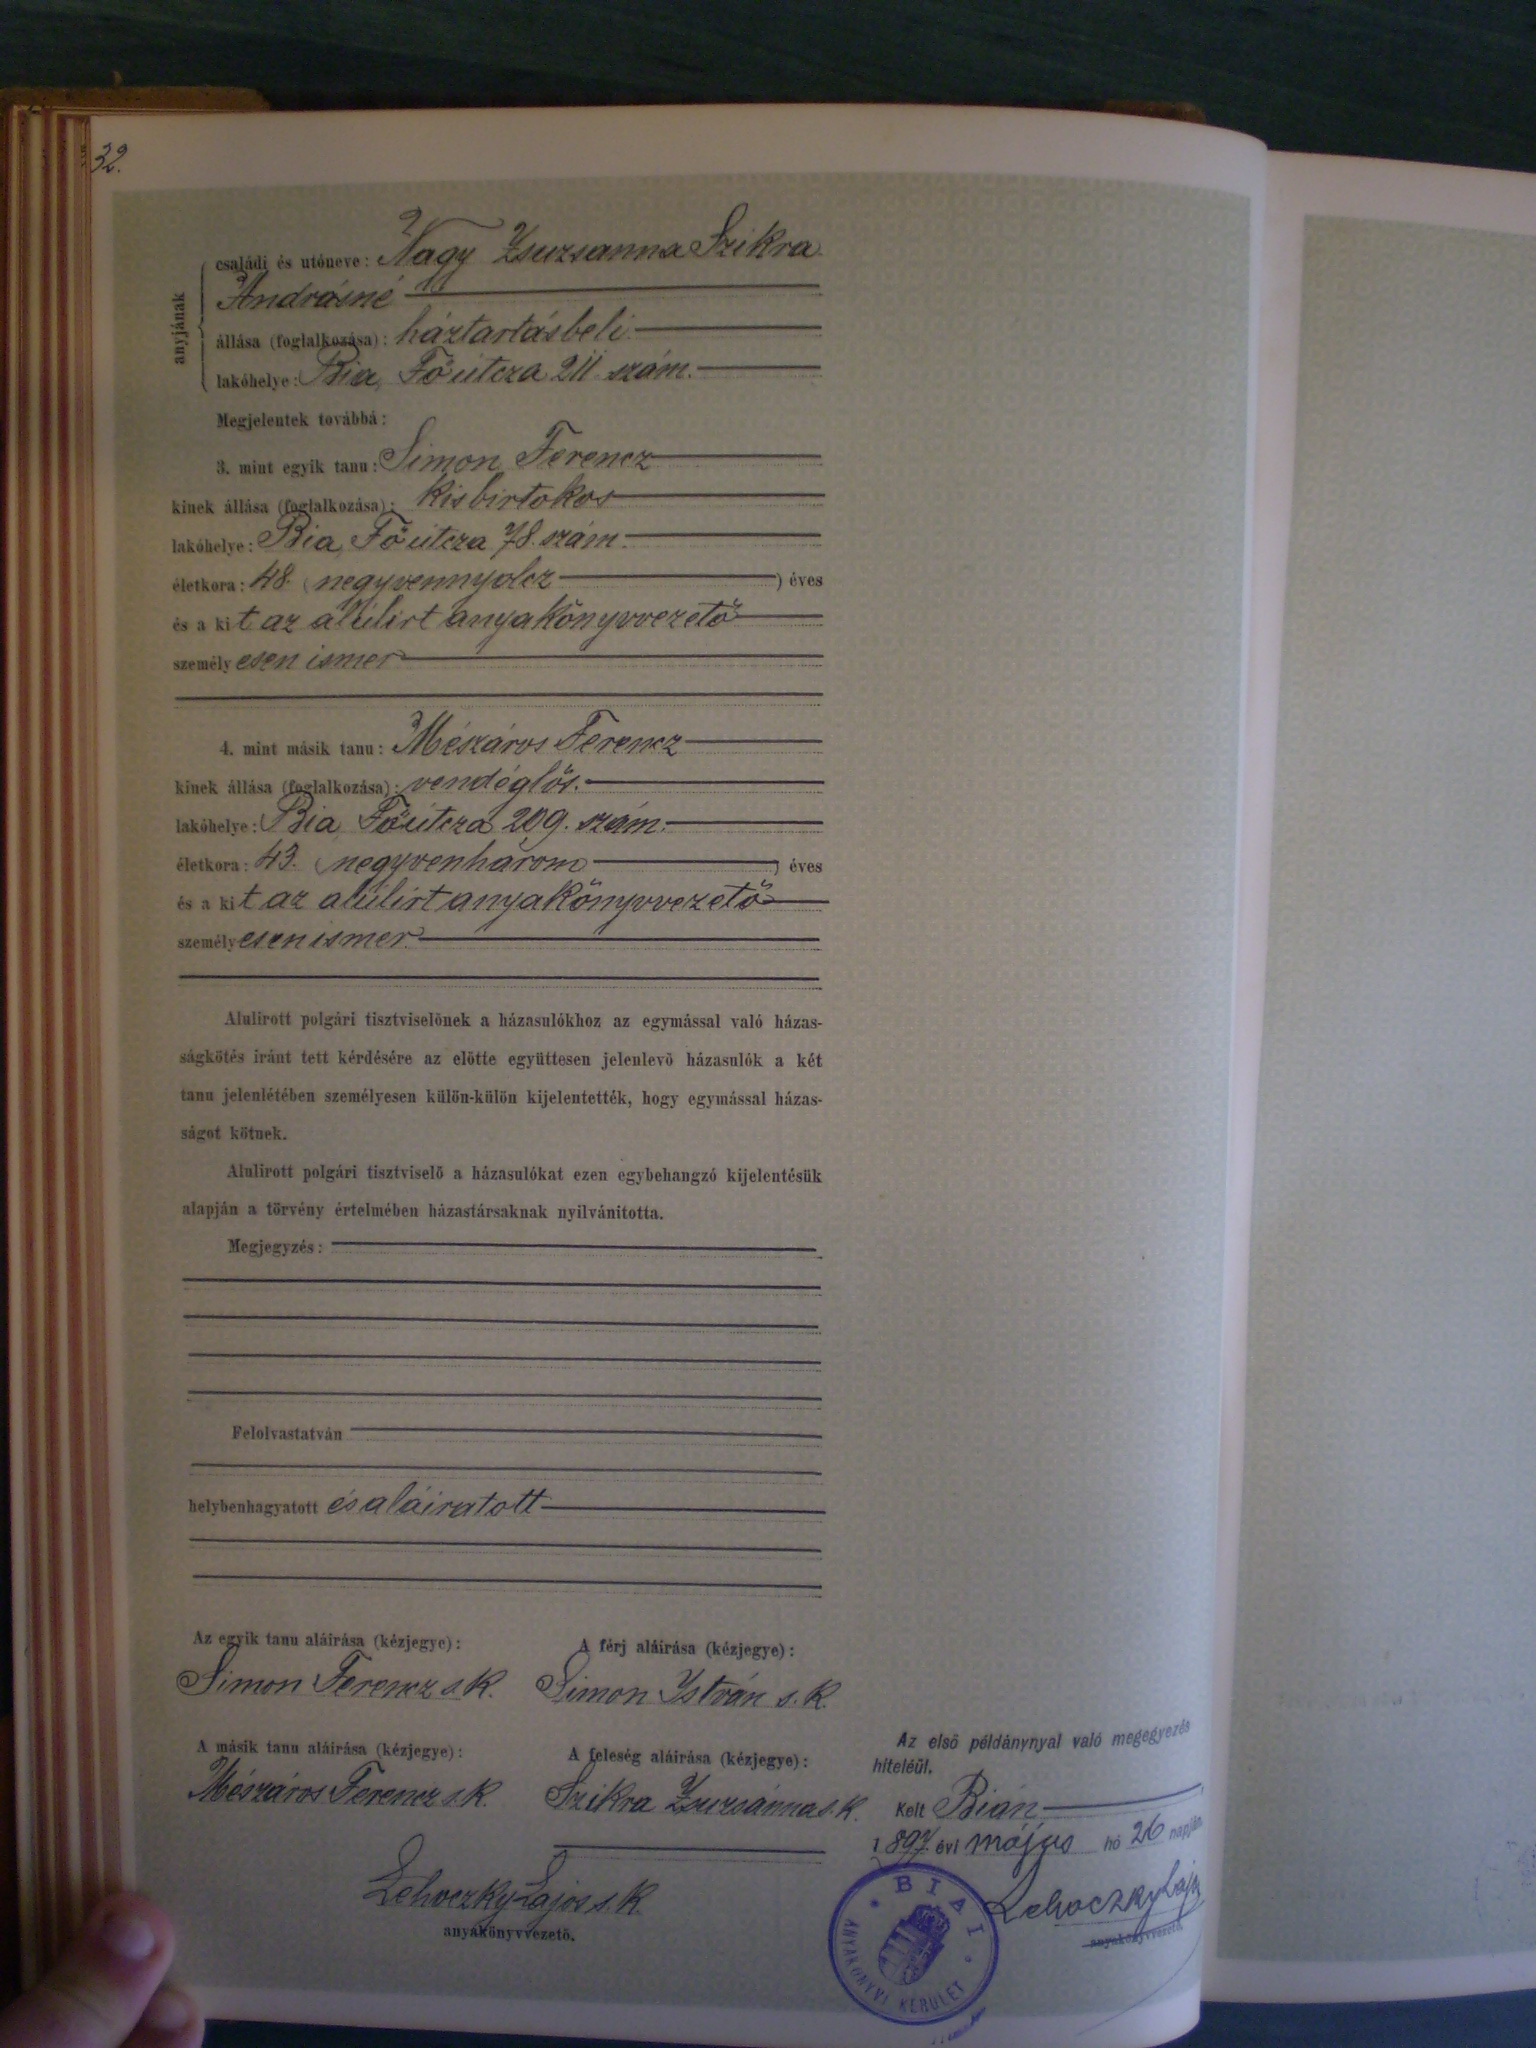 32.
anyjának
családi és utóneve: Nagy Zsuzsanna Szikra
Andrásné
állása (foglalkozása): háztartásbeli
lakóhelye: Bia, Főútcza 211 szám.
Megjelentek továbbá:
3. mint egyik tanu: Simon Ferencz
kinek állása (foglalkozása): kisbirtokos
lakóhelye: Bia, Főútcza 78. szám.
életkora: 48. (negyvennyolcz) éves
és a kit az alúlirt anyakönyvvezető
személyesen ismer
4. mint másik tanu: Mészáros Ferencz
kinek állása (foglalkozása): vendéglős.
lakóhelye: Bia Főútcza 209. szám.
életkora: 43. (negyvenhárom) éves
és a kit az alúlirt anyakönyvvezető
személyesen ismer
Alulirott polgári tisztviselőnek a házasulókhoz az egymással való házas-
ságkötés iránt tett kérdésére az előtte együttesen jelenlevő házasulók a két
tanu jelenlétében személyesen külön-külön kijelentették, hogy egymással házas-
ságot kötnek.
Alulirott polgári tisztviselő a házasulókat ezen egybehangzó kijelentésük
alapján a törvény értelmében házastársaknak nyilvánitotta.
Megjegyzés:
Felolvastatván
helybenhagyatott és aláiratott
Az egyik tanu aláirása (kézjegye):
Simon Ferencz s.k.
A férj aláirása (kézjegye):
Simon István s.k.
A másik tanu aláirása (kézjegye):
Mészáros Ferencz s.k.
A feleség aláirása (kézjegye):
Szikra Zsuzsánna s.k.
Lehoczky Lajos s.k.
anyakönyvvezető.
Az első példánynyal való megegyezés
hiteléül.
Kelt Bián
1897. évi május hó 26 napján
Lehoczky Lajos
anyakönyvvezető.
BIAI
ANYAKÖNYVI KERÜLET